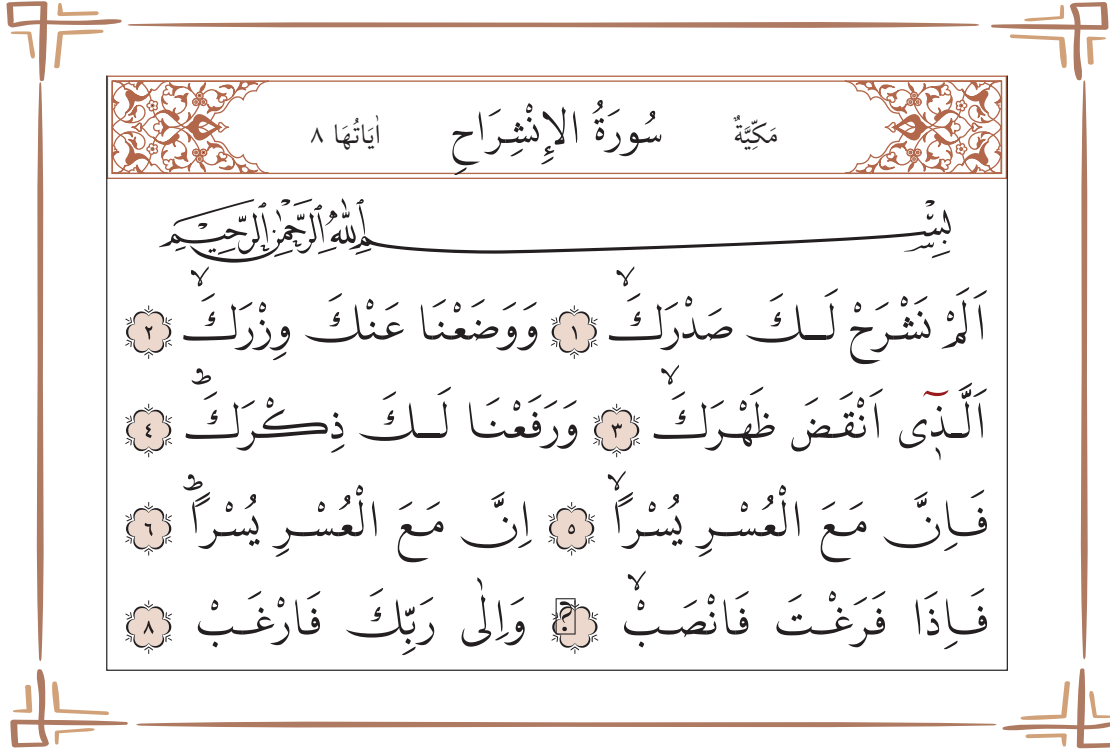 مَكِّيَّةٌ سُورَةُ الاِنْشِرَاحِ اٰيَاتُهَا ٨
بِسْمِ اللهِ الرَّحْمٰنِ الرَّحِيمِ
اَلَمْ نَشْرَحْ لَكَ صَدْرَكَۙ ١ وَوَضَعْنَا عَنْكَ وِزْرَكَۙ ٢
اَلَّذٖٓى اَنْقَضَ ظَهْرَكَۙ ٣ وَرَفَعْنَا لَكَ ذِكْرَكَؕ ٤
فَاِنَّ مَعَ الْعُسْرِ يُسْرًاۙ ٥ اِنَّ مَعَ الْعُسْرِ يُسْرًاؕ ٦
فَاِذَا فَرَغْتَ فَانْصَبْۙ ? وَاِلٰى رَبِّكَ فَارْغَبْ ٨